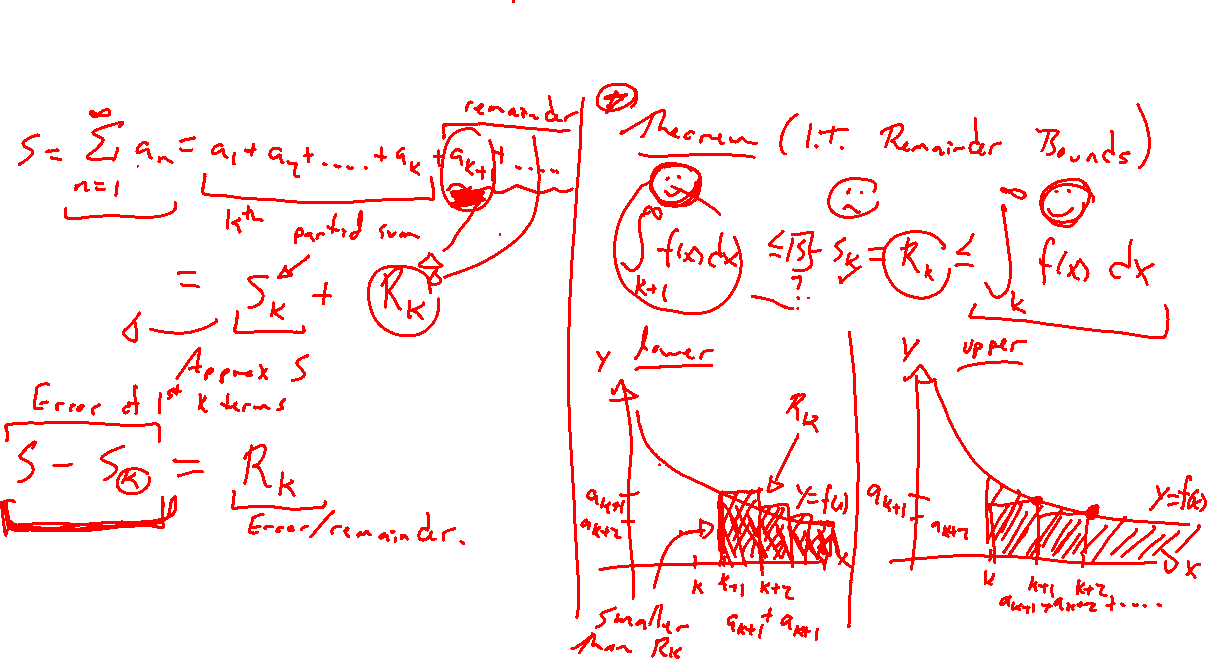 remainder
S = ∑_{n=1}^{∞} a_n = a_1 + a_2 + ..... + a_k + a_{k+1} + .....
kth
partial sum
= S_k + R_k
Approx S
Error of 1st
k terms
S - S_k = R_k
Error/remainder.
Theorem (I.T. Remainder Bounds)
∫_{k+1}^{∞} f(x) dx ≤ |S| - S_k = R_k ≤ ∫_k^{∞} f(x) dx
?
lower
Y
R_k
a_{k+1}
a_{k+2}
Y=f(x)
x
k k+1 k+2
a_{k+1} + a_{k+1}
Smaller
than R_k
upper
Y
a_{k+1}
a_{k+2}
Y=f(x)
x
k k+1 k+2
a_{k+1} + a_{k+2} + ....